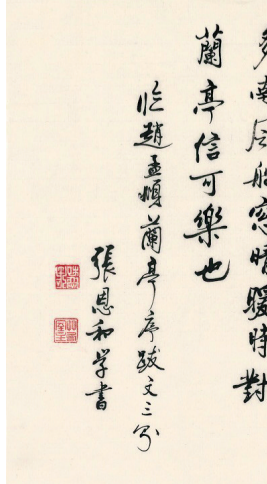 多南风船窓晴暖時對
蘭亭信可樂也
临趙孟頫蘭亭序跋文三
張恩和学書